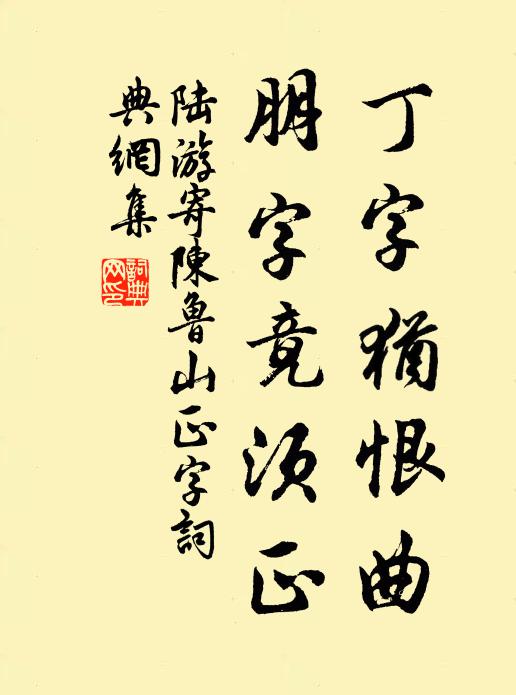 丁字猶恨曲
朋字竟須正
陸游寄陳魯山正字詞
典網集
詞典
网印